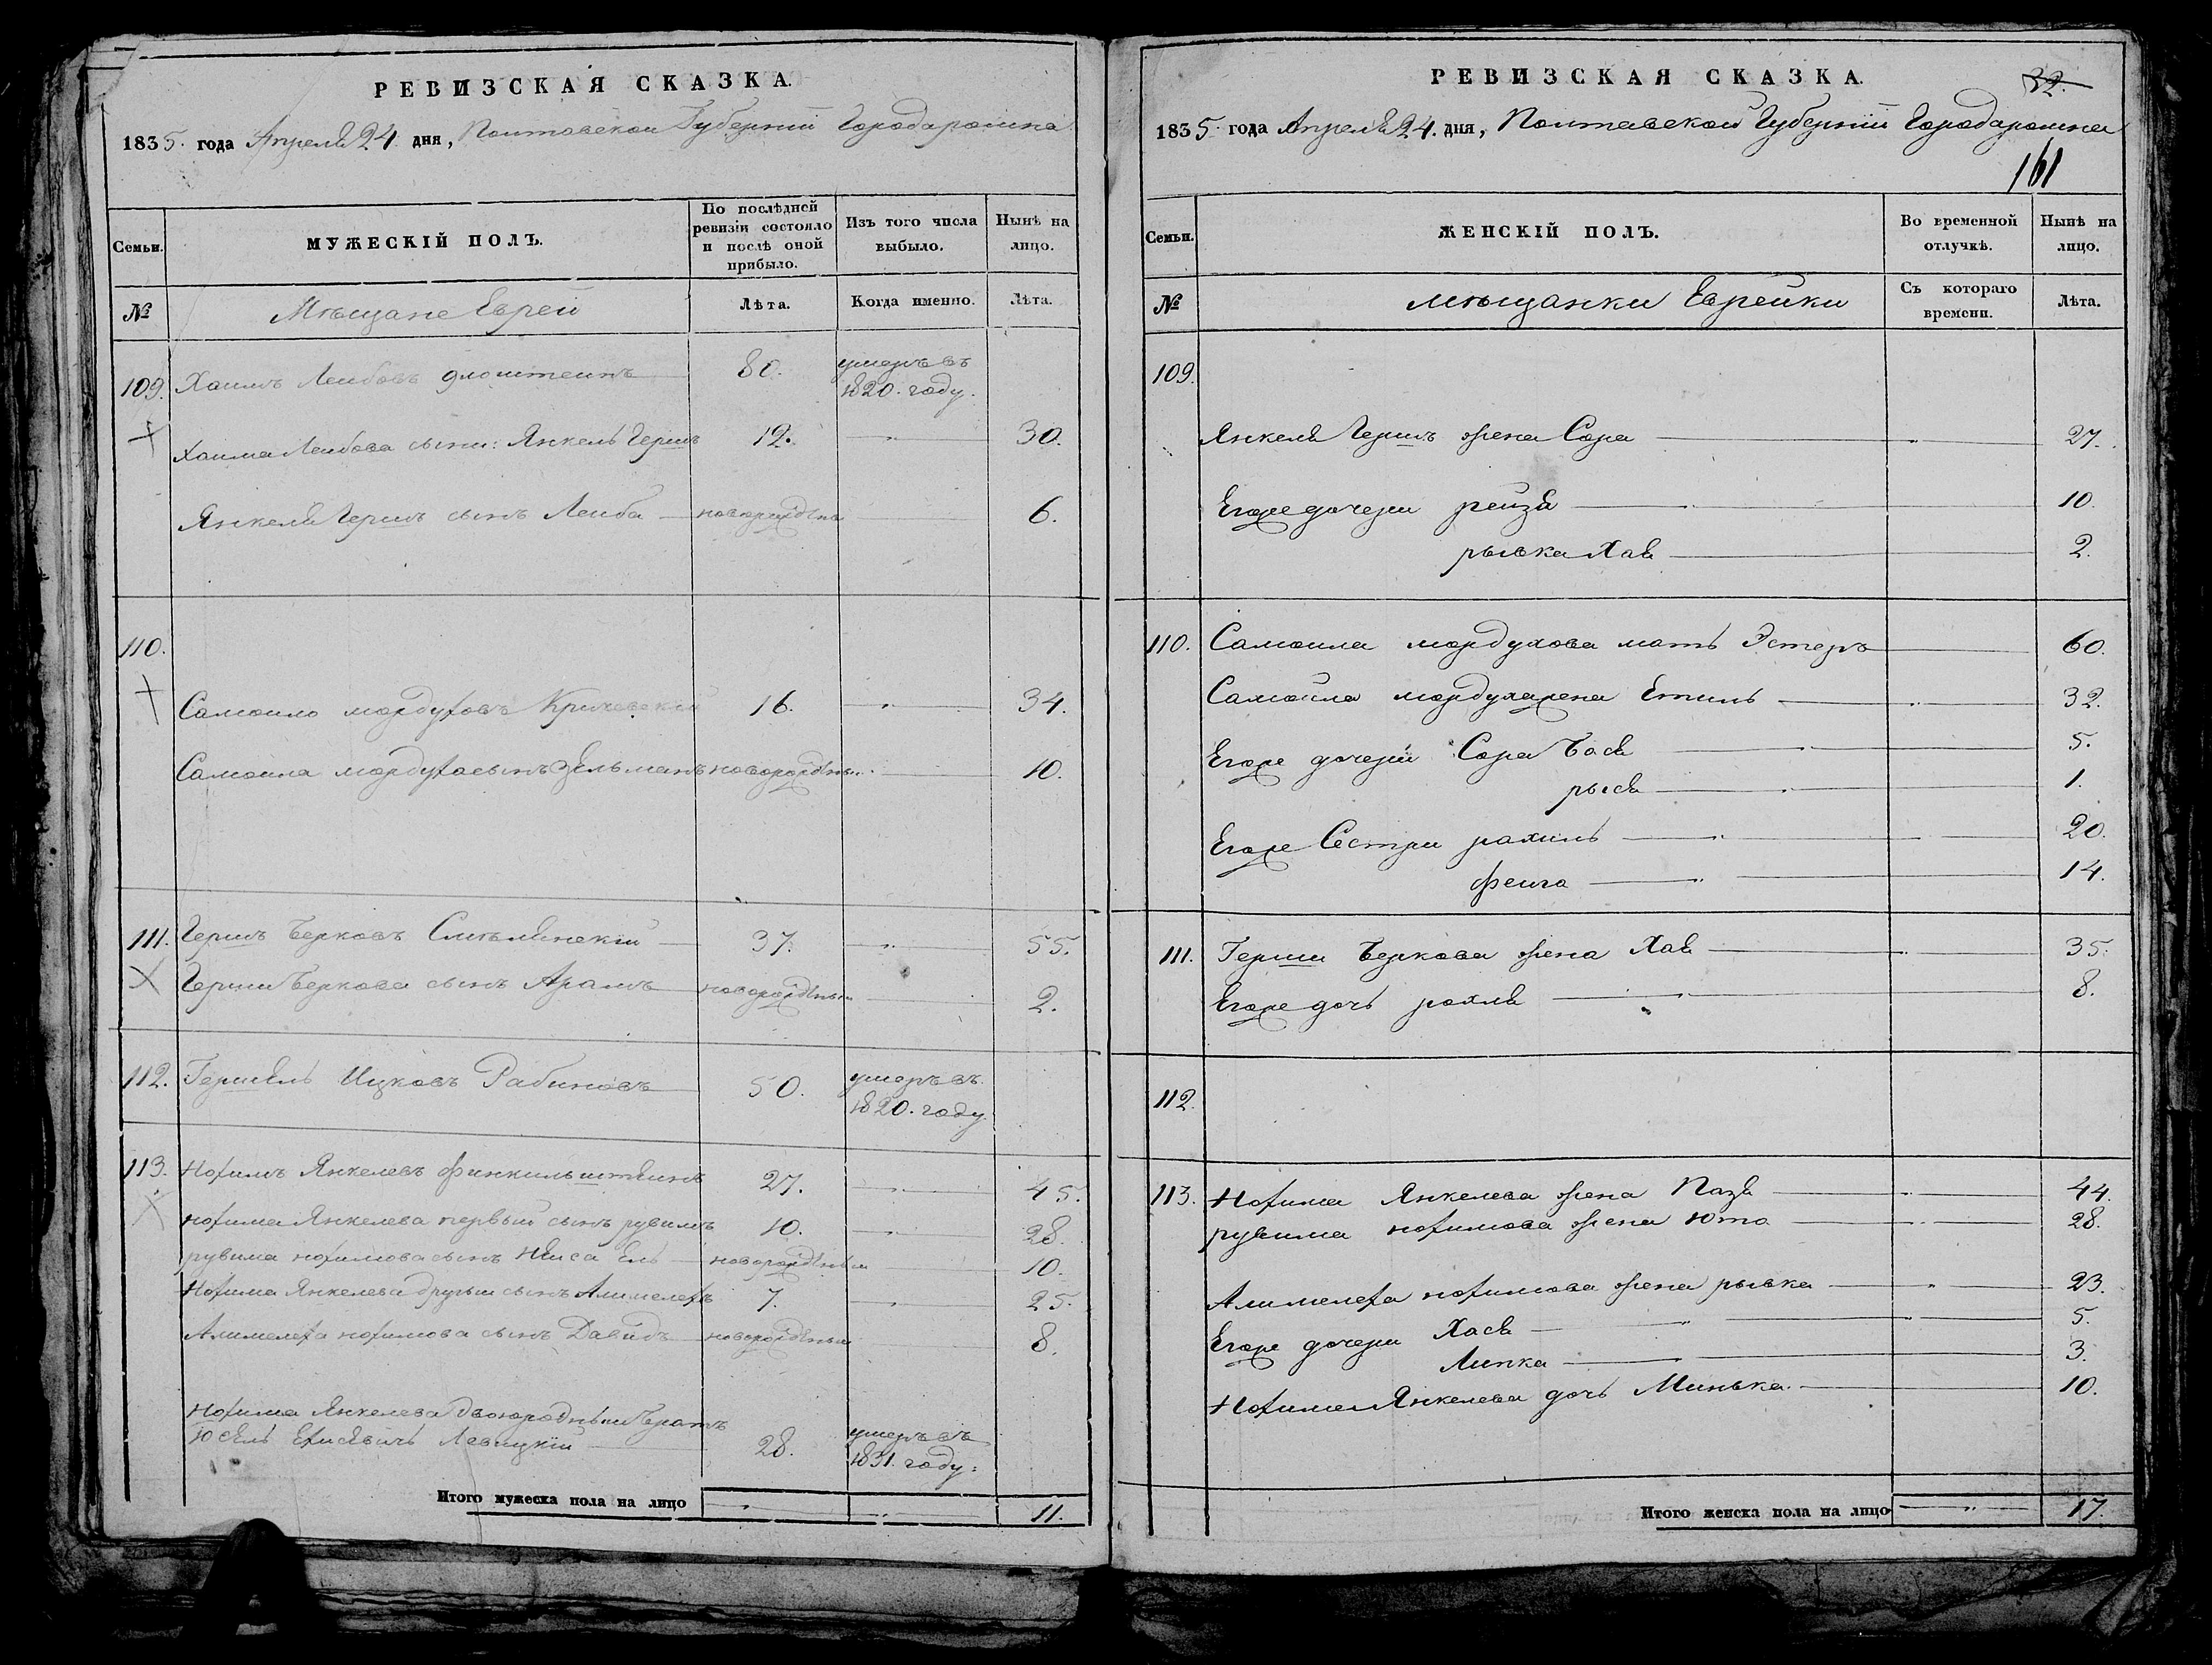 РЕВИЗСКАЯ СКАЗКА.
1835. года Апреля 24. дня, Полтавской Губернии Города ромна
Семьи.
МУЖЕСКІЙ ПОЛЪ.
По послѣдней ревизіи состояло и послѣ оной прибыло.
Изъ того числа выбыло.
Нынѣ на лицо.
№
Мѣщане Еврей
Лѣта.
Когда именно.
Лѣта.
109. Хаимъ Леибовъ 80. умеръ въ 1820. году.
Хаима Леибова сыни: Янкель Гершъ 12. 30.
Янкеля Герша сынъ Леиба новорожденъ 6.
110.
Самоило мордуховъ Кричевский 16. 34.
Самоила мордуха сынъ Зельманъ новорожденъ 10.
111. Гершъ Берковъ Смѣлянский 37. 55.
Герши Беркова сынъ Арамъ новорожденыи 2.
112. Гершель Ицковъ Рабиновъ 50. умеръ въ 1820. году.
113. Нохимъ Янкелевъ Финкильштеинъ 27. 45.
нохима Янкелева первый сынъ рувимъ 10. 28.
рувима нохимова сынъ новорожденыи 10.
Нохима Янкелева другыи сынъ Алимелехъ 7. 25.
Алимелеха нохимова сынъ Давидъ новорожденыи 8.
Нохима Янкелева двоюродныи братъ
Юсель Левицкий 28. умеръ въ 1831. году.
Итого мужеска пола на лицо 11.
РЕВИЗСКАЯ СКАЗКА.
32.
1835. года Апреля 24. дня, Полтавской Губернии Города ромна
161
Семьи.
ЖЕНСКІЙ ПОЛЪ.
Во временной отлучкѣ.
Нынѣ на лицо.
№
мѣщанки Еврейки
Съ котораго времени.
Лѣта.
109.
Янкеля Гершъ жена Сора 27.
Егоже дочери рейзя 10.
рывка Хая 2.
110. Самоила мордухова мать Эстеръ 60.
Самойла мордуха жена Етиль 32.
Егоже дочерй Сора Бася 5.
рыся 1.
Егоже Сестри рахиль 20.
феига 14.
111. Герши Беркова жена Хая 35.
Егоже дочь рохля 8.
112.
113. Нохима Янкелева жена Пазя 44.
рувима нохимова жена Юта 28.
Алимелеха нохимова жена рывка 23.
Егоже дочери Хася 5.
Липка 3.
Нохима Янкелева дочь Минька 10.
Итого женска пола на лицо 17.